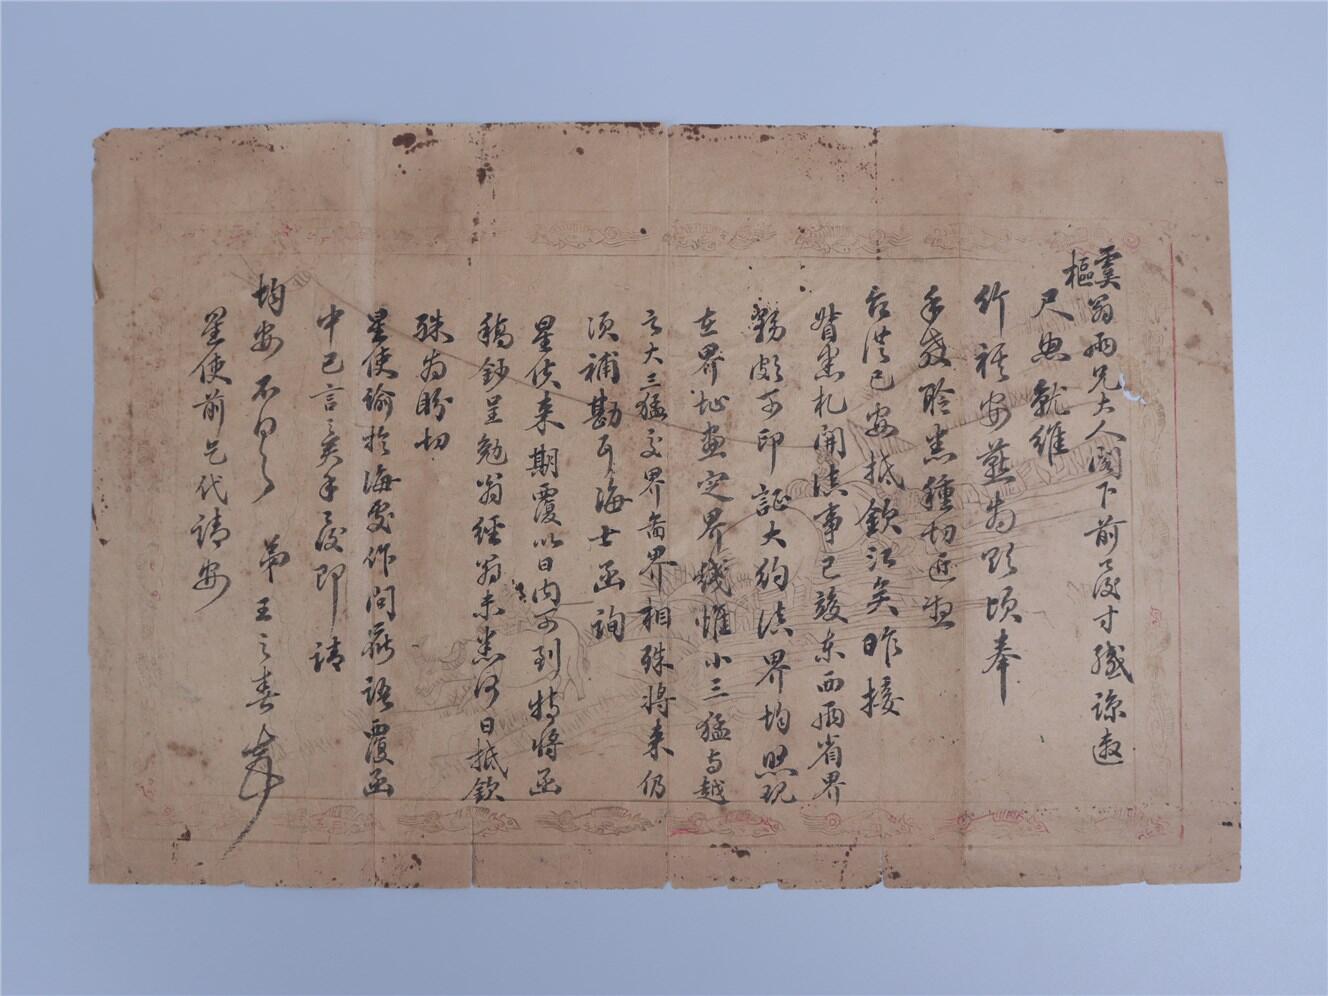 虞樞翁兩兄大人閣下前發寸緘諒邀
尺照就維
行祺安燕為頌頃奉
手教聆悉種切近想
台從已安抵欽江矣昨接
督憲札開滇事已竣東西兩省界
務頗可印證大約滇界均照現
在界址畫定界綫惟小三猛與越
之大三猛交界啚界相殊將來仍
須補勘耳海士函詢
星使來期覆以日內可到特將函
稿鈔呈勉翁經翁未悉何日抵欽
殊為盼切
星使諭於海處作問
語覆函
中已言矣手此復即請
均安不
弟王之春
星使前乞代請安